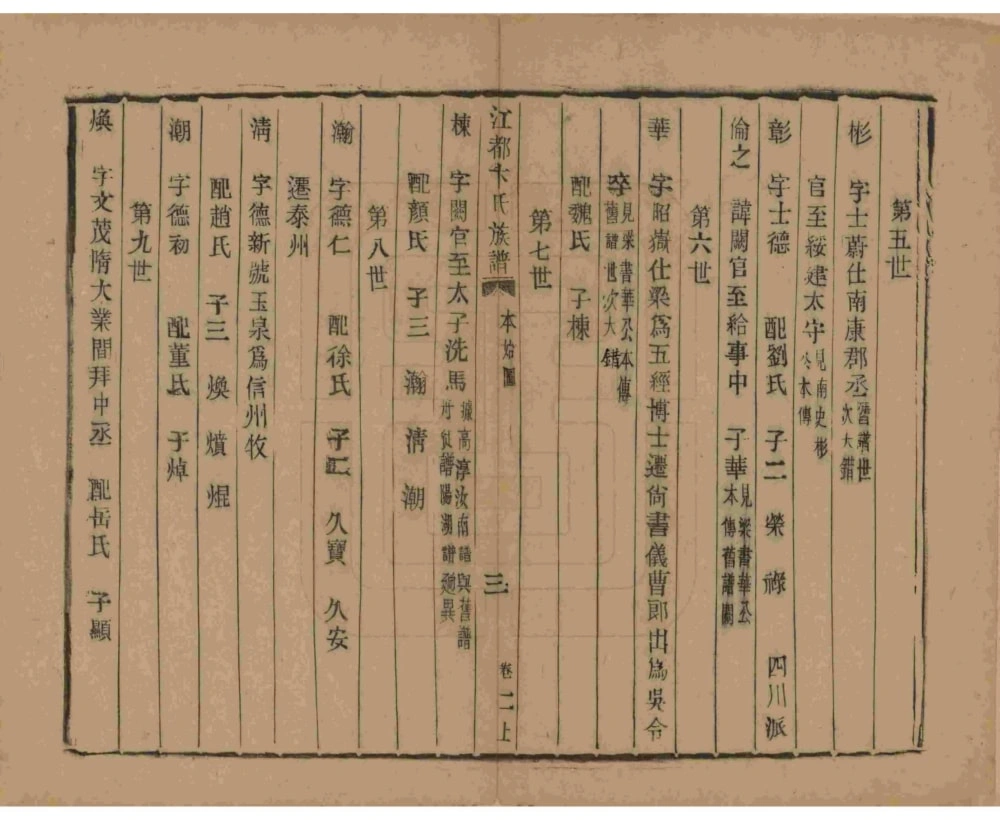 第五世
彬 字士蔚仕南康郡丞舊譜世次大錯
官至綏建太守見南史彬本傳
彰 字士德 配劉氏 子二 榮 祿 四川派
倫之 諱闕官至給事中 子華見梁書華公本傳舊譜闕
第六世
華 字昭嶽仕梁爲五經博士遷尙書儀曹郎出爲吳令
卒見梁書華公本傳舊譜世次大錯
配魏氏 子棟
第七世
江都卞氏族譜 本始圖 三 卷二上
棟 字闕官至太子洗馬據高淳汝南譜與舊譜陽湖譜逈異
配顏氏 子三 瀚 淸 潮
第八世
瀚 字德仁 配徐氏 子二 久寶 久安
遷泰州
淸 字德新號玉泉爲信州牧
配趙氏 子三 煥 熕 焜
潮 字德初 配董氏 子焯
第九世
煥 字文茂隋大業間拜中丞 配岳氏 子顯